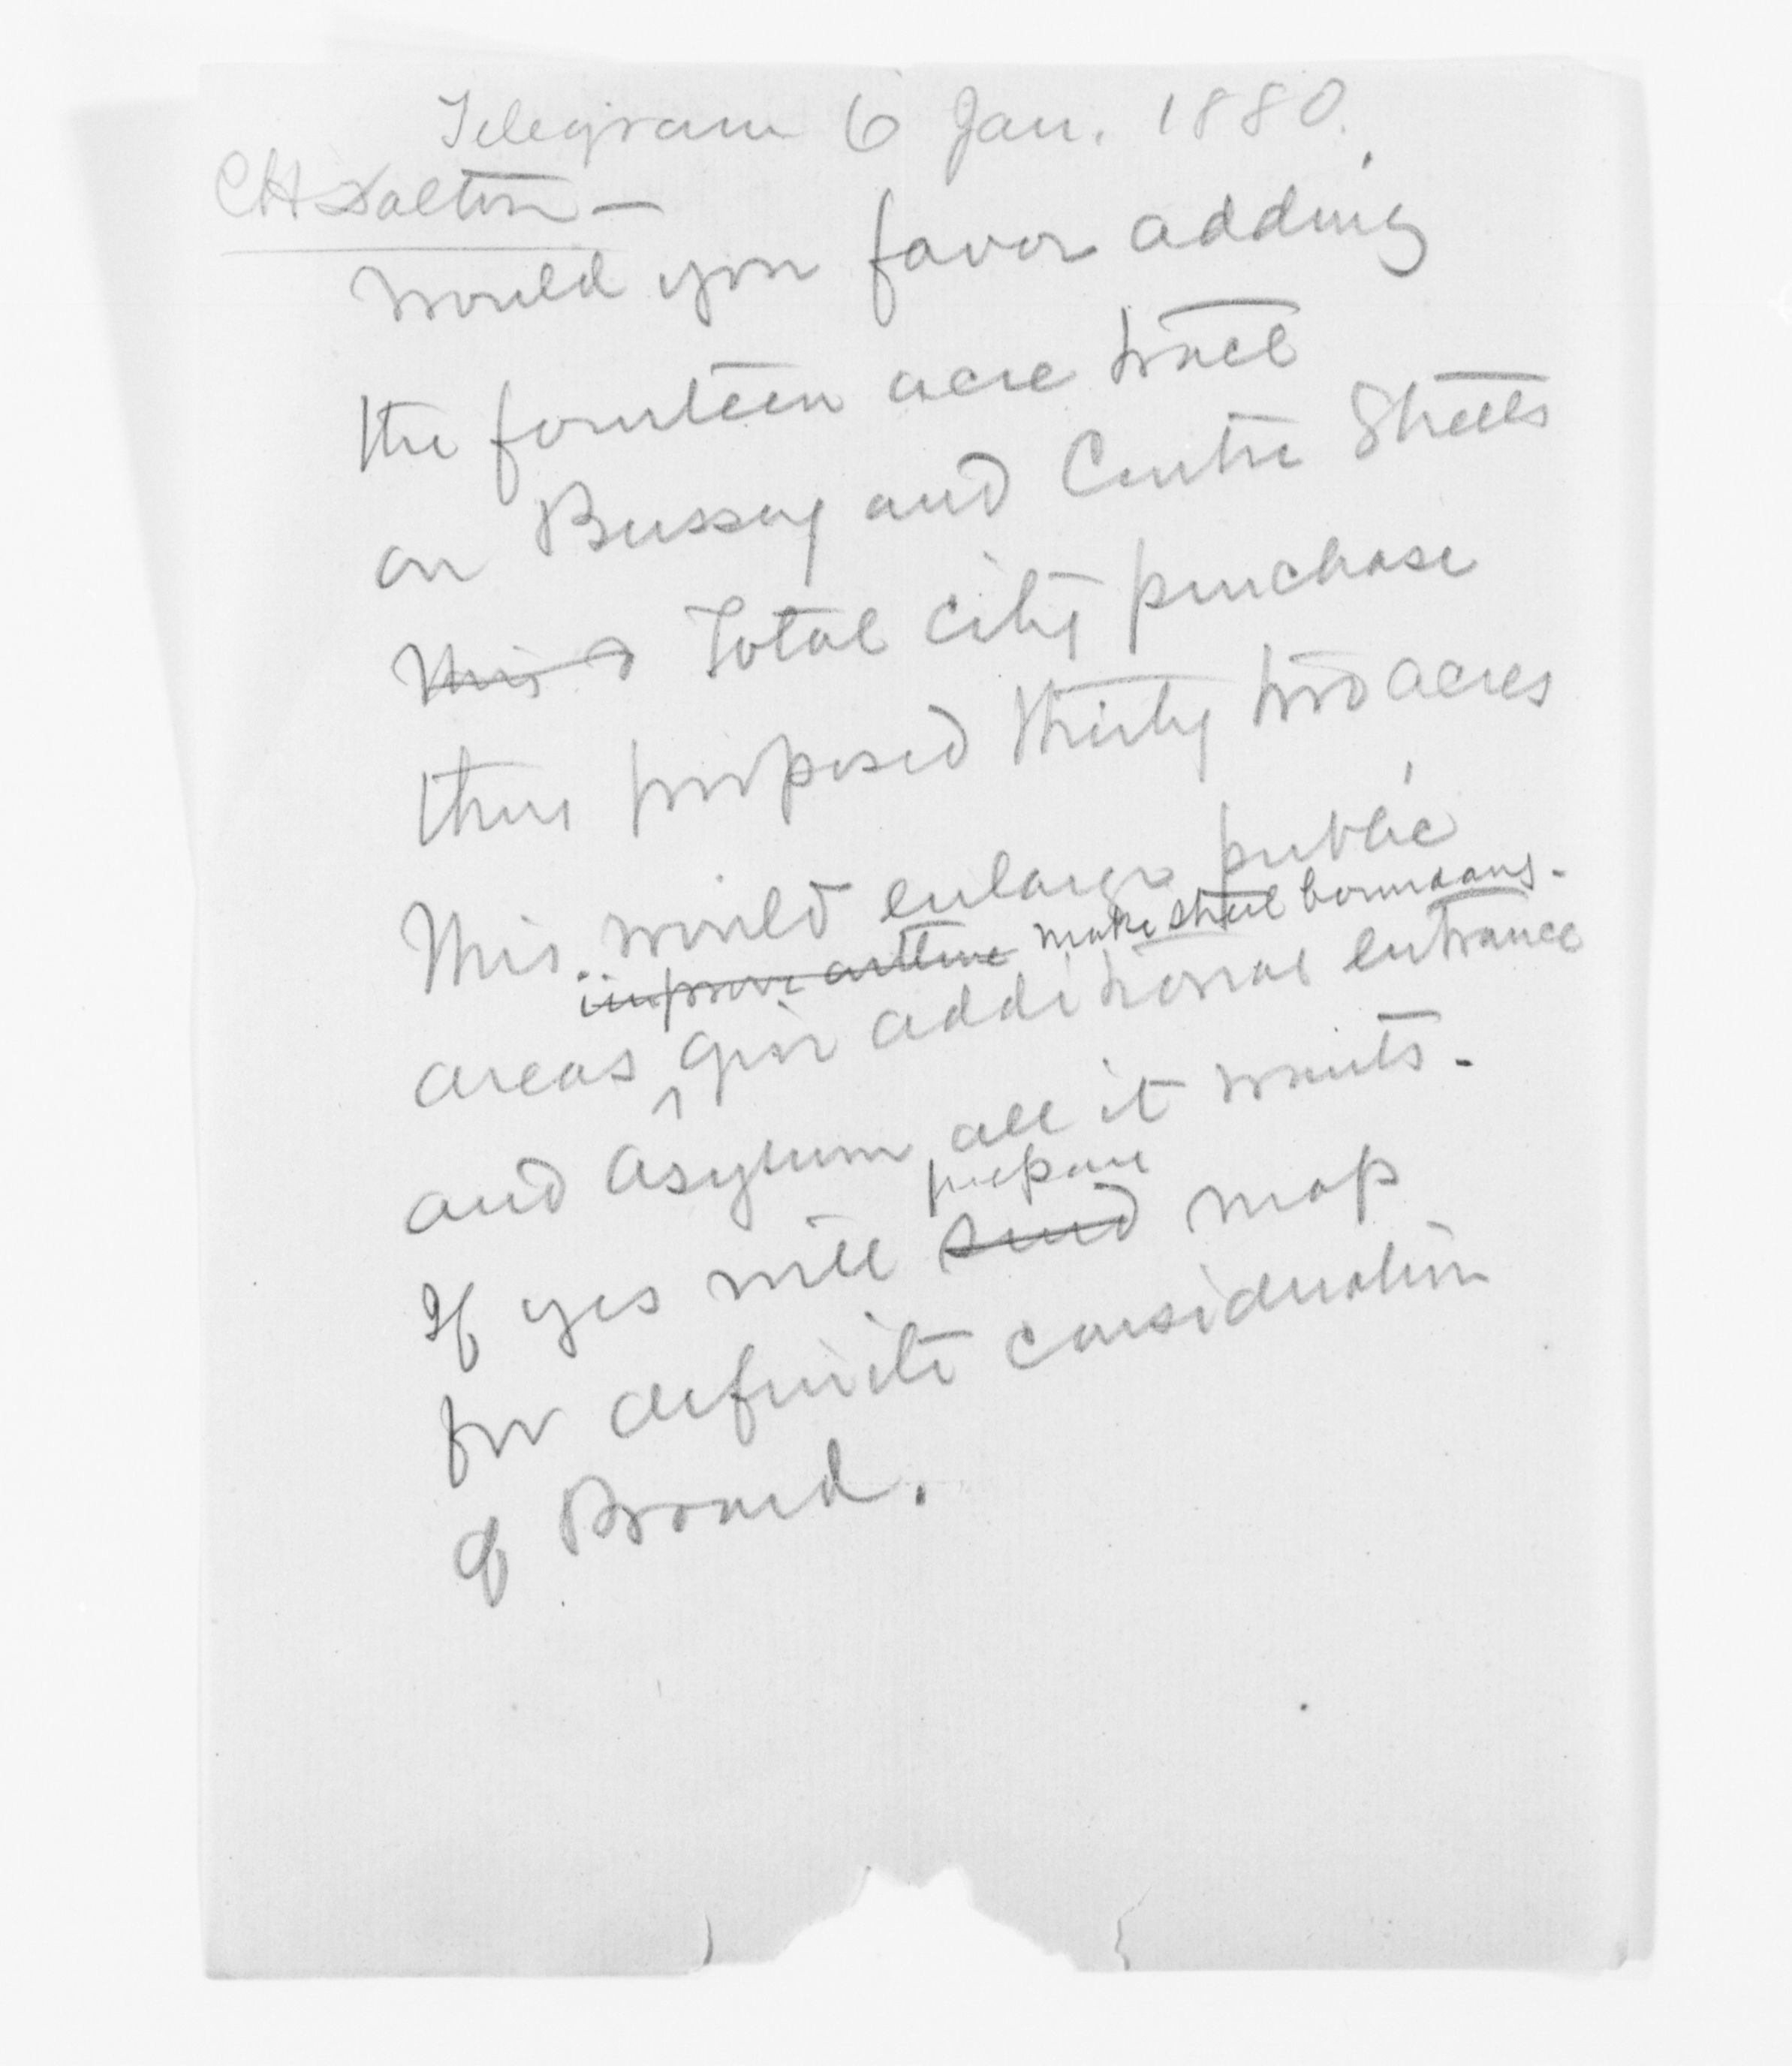 Telegram 6 Jan. 1880.
CH Dalton —
Would you favor adding
the fourteen acre tract
on Bussey and Centre Streets
This Total city purchase
thus proposed thirty two acres
This would enlarge public
improve outline make street boundary -
areas give additional entrance
and Asylum all it wants -
prepare
If yes will send map
for definite consideration
of Board.